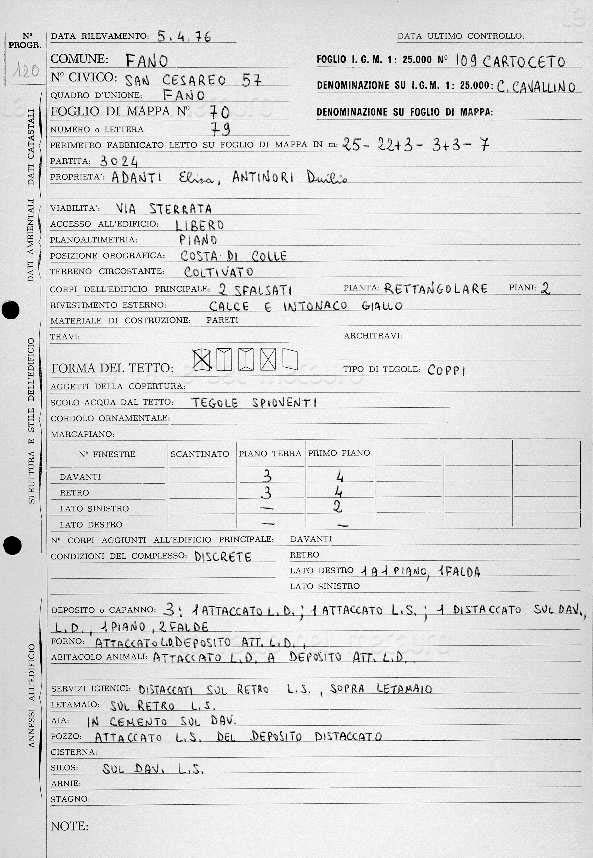 N° PROGR. 120
DATA RILEVAMENTO: 5.4.76 DATA ULTIMO CONTROLLO:
COMUNE: FANO FOGLIO I. G. M. 1: 25.000 N° 109 CARTOCETO
N° CIVICO: SAN CESAREO 57 DENOMINAZIONE SU I.G.M. 1: 25.000: C. CAVALLINO
QUADRO D'UNIONE: FANO
FOGLIO DI MAPPA N° 70 DENOMINAZIONE SU FOGLIO DI MAPPA:
NUMERO o LETTERA 79
PERIMETRO FABBRICATO LETTO SU FOGLIO DI MAPPA IN m: 25-22+3-3+3-7
PARTITA: 3024
PROPRIETA': ADANTI Elisa, ANTINORI Duilio
DATI AMBIENTALI DATI CATASTALI
VIABILITA': VIA STERRATA
ACCESSO ALL'EDIFICIO: LIBERO
PLANOALTIMETRIA: PIANO
POSIZIONE OROGRAFICA: COSTA DI COLLE
TERRENO CIRCOSTANTE: COLTIVATO
CORPI DELL'EDIFICIO PRINCIPALE: 2 SFALSATI PIANTA: RETTANGOLARE PIANI: 2
RIVESTIMENTO ESTERNO: CALCE E INTONACO GIALLO
MATERIALE DI COSTRUZIONE: PARETI
TRAVI: ARCHITRAVI:
FORMA DEL TETTO: TIPO DI TEGOLE: COPPI
AGGETTI DELLA COPERTURA:
SCOLO ACQUA DAL TETTO: TEGOLE SPIOVENTI
CORDOLO ORNAMENTALE:
MARCAPIANO:
STRUTTURA E STILE DELL'EDIFICIO
N° FINESTRE SCANTINATO PIANO TERRA PRIMO PIANO
DAVANTI 3 4
RETRO 3 4
LATO SINISTRO — 2
LATO DESTRO — —
N° CORPI AGGIUNTI ALL'EDIFICIO PRINCIPALE: DAVANTI
CONDIZIONI DEL COMPLESSO: DISCRETE RETRO
LATO DESTRO 1 A 1 PIANO, 1 FALDA
LATO SINISTRO
DEPOSITO o CAPANNO: 3: 1 ATTACCATO L.D.; 1 ATTACCATO L.S.; 1 DISTACCATO SUL DAV.,
L.D., 1 PIANO, 2 FALDE
FORNO: ATTACCATO L.D. DEPOSITO ATT. L.D.,
ABITACOLO ANIMALI: ATTACCATO L.D. A DEPOSITO ATT. L.D.
ANNESSI ALL'EDIFICIO
SERVIZI IGIENICI: DISTACCATI SUL RETRO L.S., SOPRA LETAMAIO
LETAMAIO: SUL RETRO L.S.
AIA: IN CEMENTO SUL DAV.
POZZO: ATTACCATO L.S. DEL DEPOSITO DISTACCATO
CISTERNA:
SILOS: SUL DAV. L.S.
ARNIE:
STAGNO
NOTE: